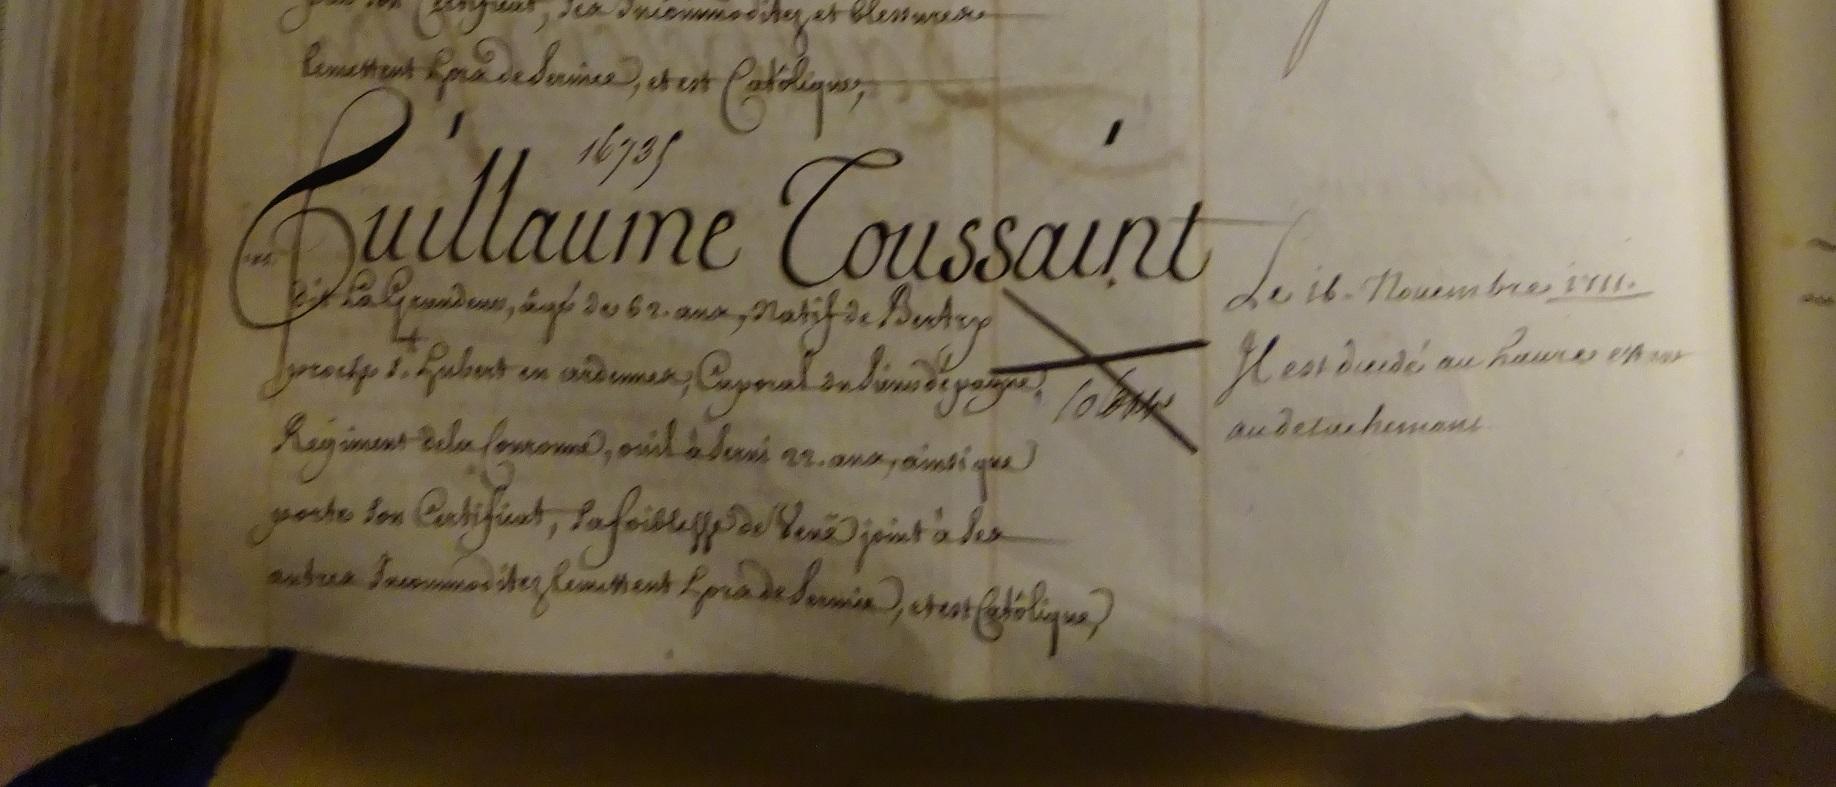 son Certificat, ses Incommoditez et blessures
lemettent hors de service, et est Catolique,
16735
Guillaume Toussaint
dit La Grandeur, âgé de 62. ans, Natif de Bertrix
proche St. Hubert en ardennes, Caporal
Régiment dela Couronne, ouil à servi 22. ans, ainsi que
porte son Certificat, sa foiblesse de Veüe joint à ses
autres Incommoditez lemettent hors de service, et est Catolique,
Le 16. Novembre 1711.
Il est décédé au havre
au detachement